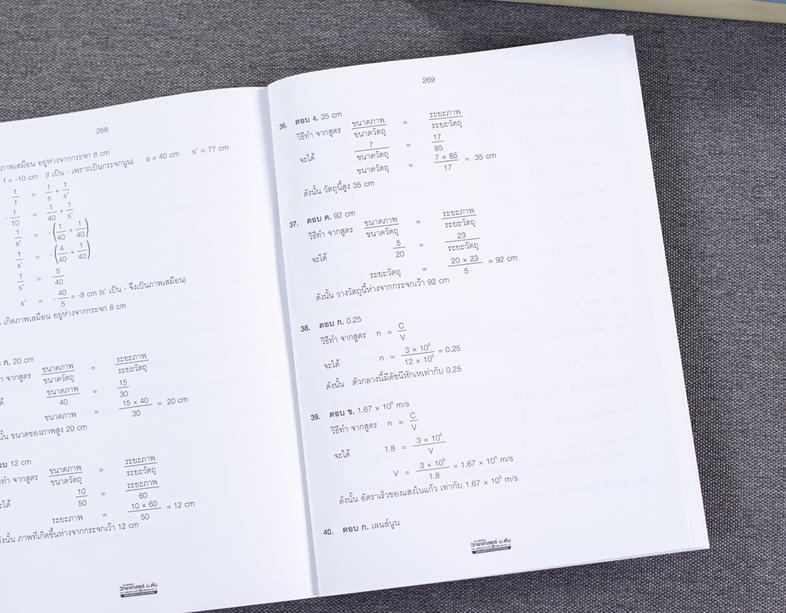 268
ภาพเสมือน อยู่ห่างจากกระจก 8 cm
f = -10 cm (f เป็น - เพราะเป็นกระจกนูน) s = 40 cm s' = ?? cm
1/f = 1/s + 1/s'
-1/10 = 1/40 + 1/s'
1/s' = -(1/40 + 1/10)
1/s' = -(4/40 + 1/40)
1/s' = 5/40
s' = -40/5 = -8 cm (s' เป็น - จึงเป็นภาพเสมือน)
เกิดภาพเสมือน อยู่ห่างจากกระจก 8 cm
ก. 20 cm
จากสูตร ขนาดภาพ/ขนาดวัตถุ = ระยะภาพ/ระยะวัตถุ
ขนาดภาพ/40 = 15/30
ขนาดภาพ = 15 × 40/30 = 20 cm
ขนาดของภาพสูง 20 cm
12 cm
จากสูตร ขนาดภาพ/ขนาดวัตถุ = ระยะภาพ/ระยะวัตถุ
ได้ 10/50 = ระยะภาพ/60
ระยะภาพ = 10 × 60/50 = 12 cm
ภาพที่เกิดขึ้นห่างจากกระจกเว้า 12 cm
วิทยาศาสตร์ ม.ต้น
269
36. ตอบ ง. 35 cm
วิธีทำ จากสูตร ขนาดภาพ/ขนาดวัตถุ = ระยะภาพ/ระยะวัตถุ
จะได้ 7/ขนาดวัตถุ = 17/85
ขนาดวัตถุ = 7 × 85/17 = 35 cm
ดังนั้น วัตถุนี้สูง 35 cm
37. ตอบ ค. 92 cm
วิธีทำ จากสูตร ขนาดภาพ/ขนาดวัตถุ = ระยะภาพ/ระยะวัตถุ
จะได้ 5/20 = 23/ระยะวัตถุ
ระยะวัตถุ = 20 × 23/5 = 92 cm
ดังนั้น วางวัตถุนี้ห่างจากกระจกเว้า 92 cm
38. ตอบ ก. 0.25
วิธีทำ จากสูตร n = C/V
จะได้ n = 3 × 10⁸/12 × 10⁸ = 0.25
ดังนั้น ตัวกลางนี้มีดัชนีหักเหเท่ากับ 0.25
39. ตอบ ข. 1.67 × 10⁸ m/s
วิธีทำ จากสูตร n = C/V
จะได้ 1.8 = 3 × 10⁸/V
V = 3 × 10⁸/1.8 = 1.67 × 10⁸ m/s
ดังนั้น อัตราเร็วของแสงในแก้ว เท่ากับ 1.67 × 10⁸ m/s
40. ตอบ ก. เลนส์นูน
วิทยาศาสตร์ ม.ต้น